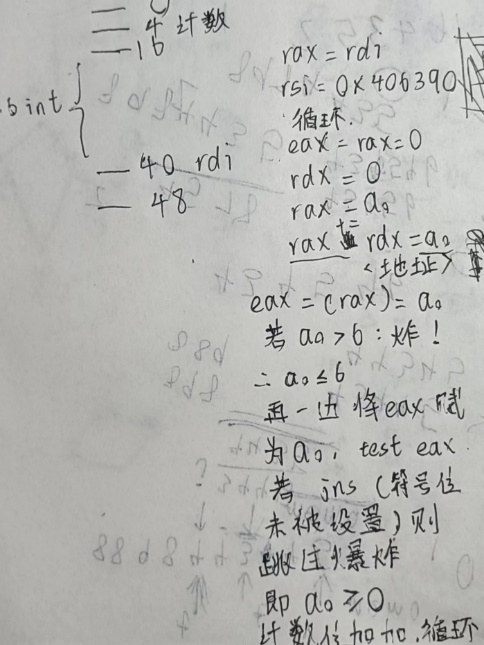 4 计数
16
6 int
40 rdi
48
rax = rdi
rsi = 0x406390
循环.
eax = rax = 0
rdx = 0
rax = a₀
rax += rdx = a₀
<地址>
eax = (rax) = a₀
若 a₀ > 6 : 炸!
∴ a₀ ≤ 6
再一边 将eax 赋
为 a₀, test eax
若 jns (符号位
未被设置) 则
跳过爆炸
即 a₀ ≥ 0
计数位加加.循环